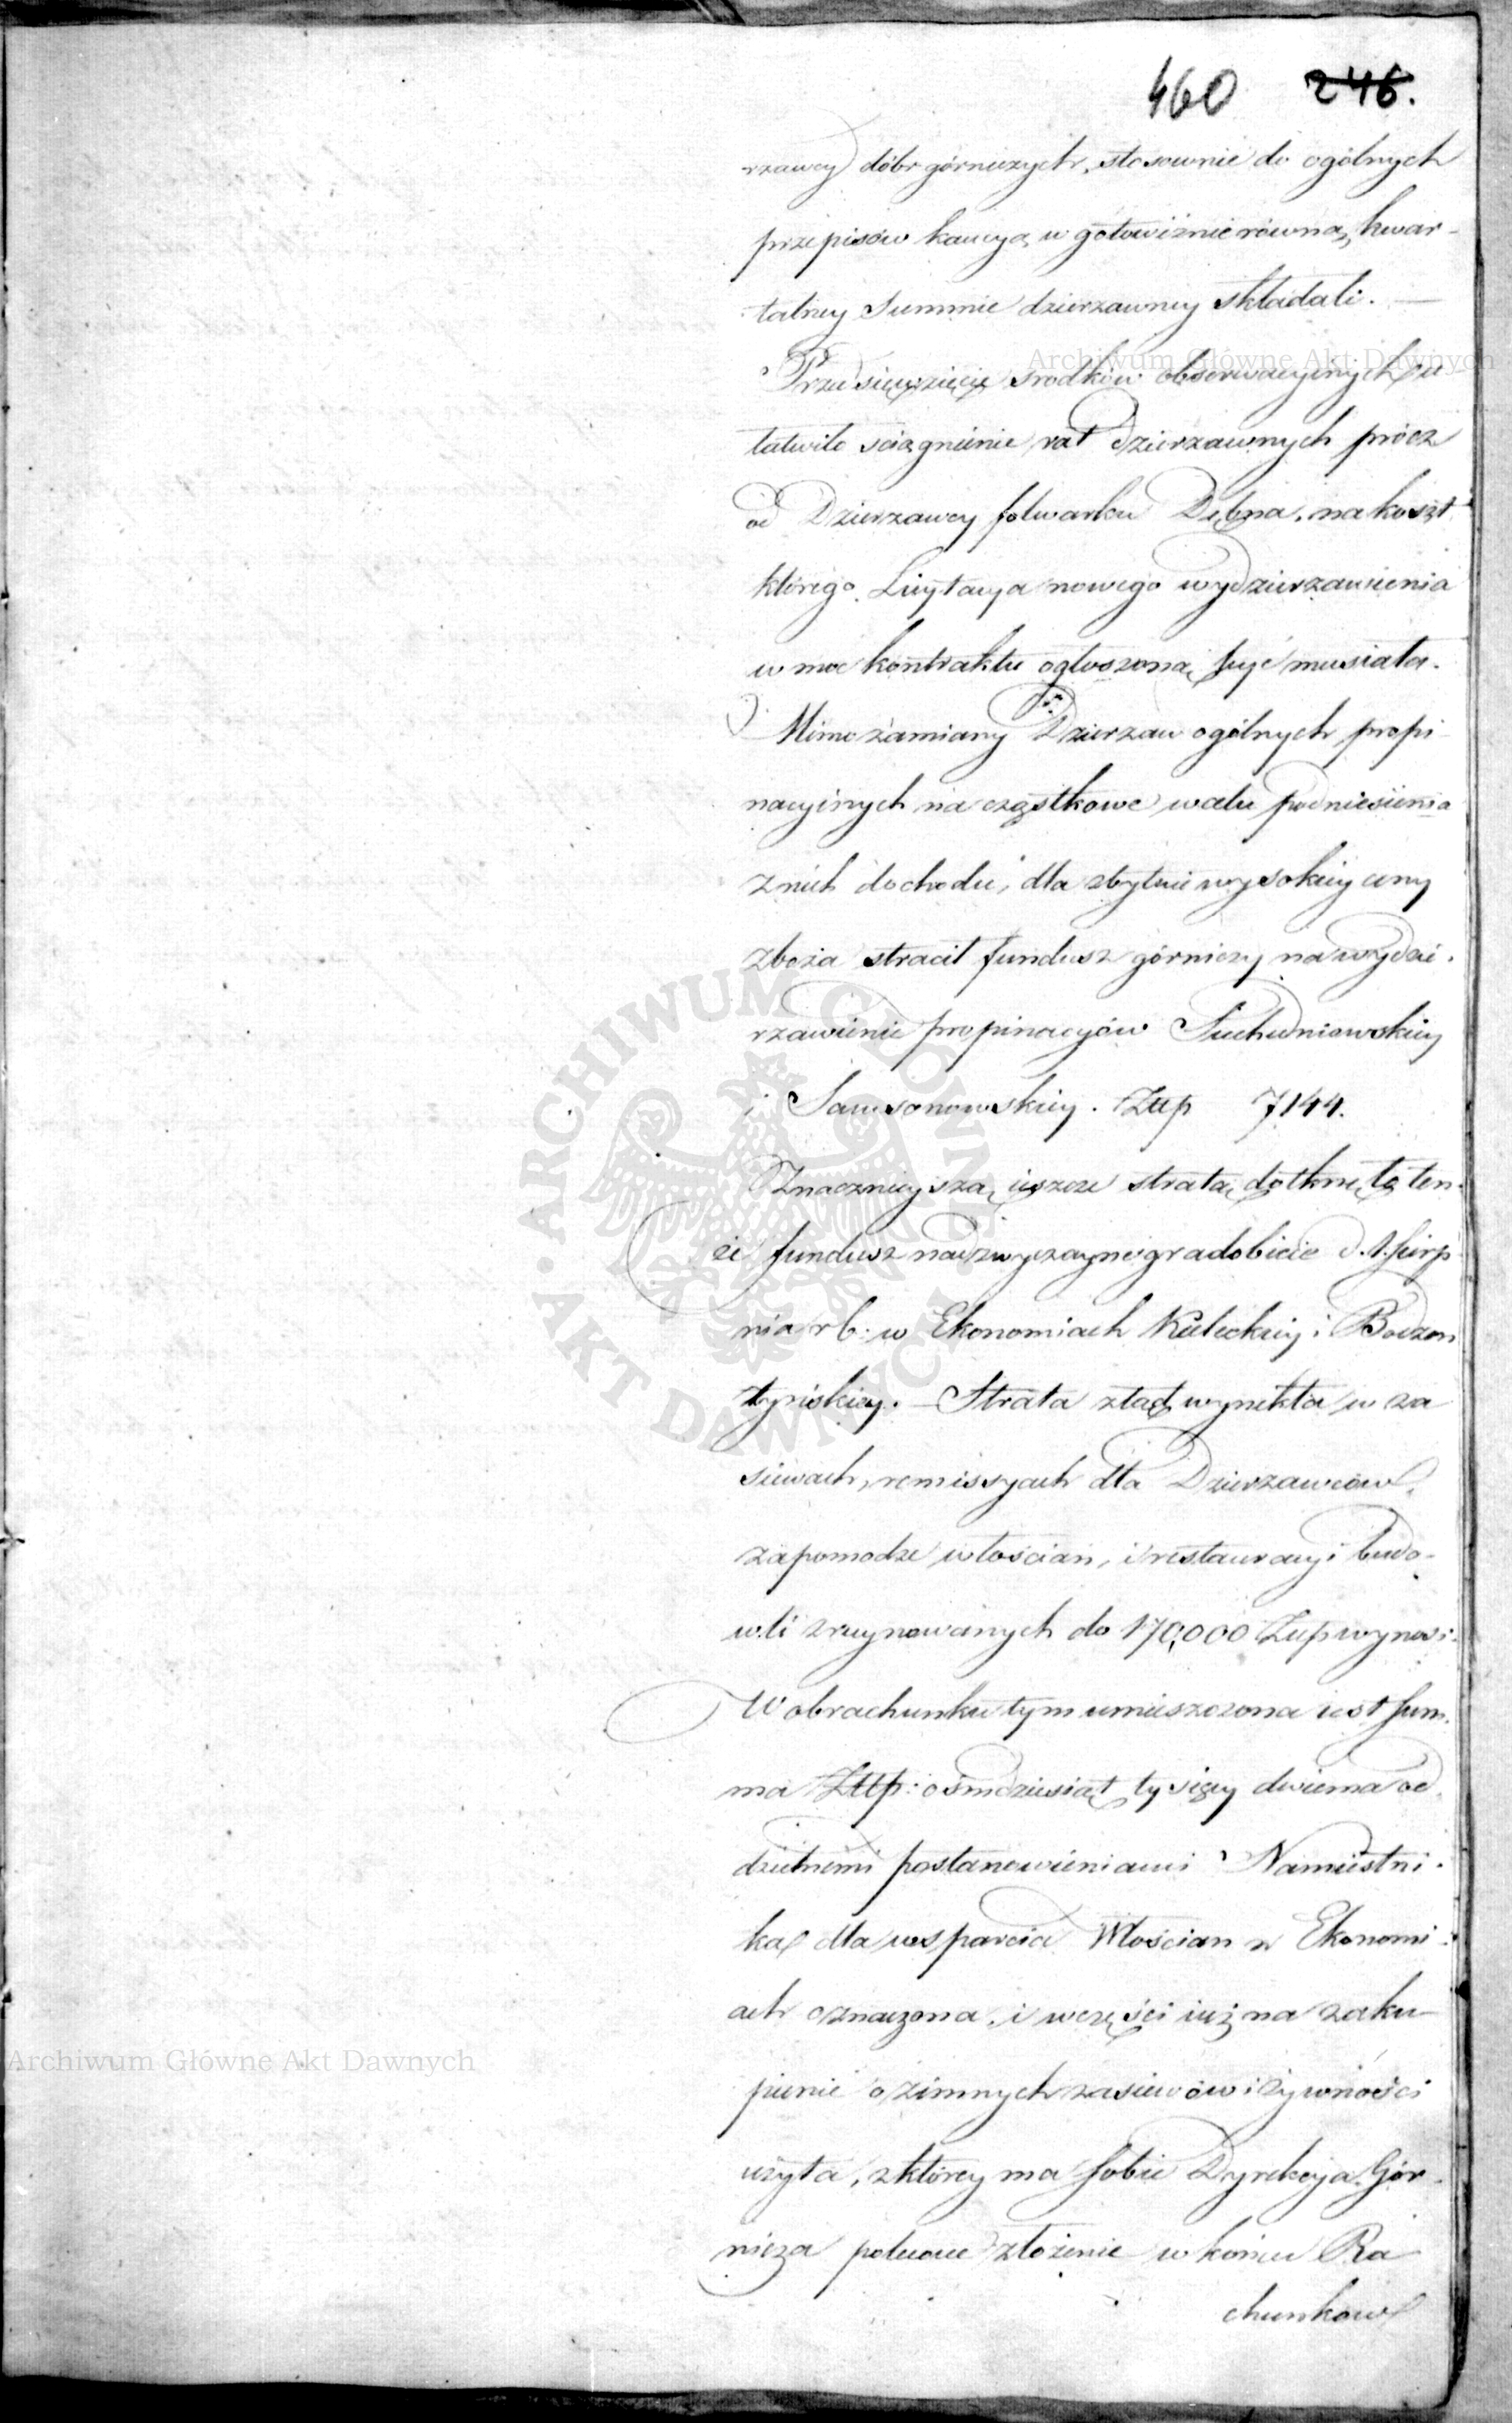 460 246.
rzawcy dóbr górniczych, stosownie do ogólnych
przepisów kaucyą w gotowiźnie równą, kwar-
talney Summie dzierzawney składali. —
Przedsięwzięcie srodków obserwacyinych u
łatwiło sciągnienie rat Dzierzawnych prócz
od Dzierzawcy folwarku Dębna, na koszt
którego Licytacya nowego wydzierzawienia
w moc kontraktu ogłoszoną być musiała.
Mimo zamiany Dzierzaw ogólnych propi-
nacyinych na cząstkowe w celu podniesienia
z nich dochodu, dla zbytnie wysokiey ceny
zboża stracił fundusz górniczy na wydzi-
rzawienie propinacyów Suchedniowskiey
i Samsonowskiey. Złłp 7144.
Znacznieyszą ieszcze stratą dotknęło ten-
że fundusz nadzwyczayne gradobicie d. 1. Sierp
nia r b: w Ekonomiach Kieleckiey i Bodzen
tyńskiey. — Strata ztąd wynikła w za
siewach, remissyach dla Dzierzawców,
zapomodze włościan, i restauracyi budo-
wli zruynowanych do 170,000 Złłp wynosi.
W obrachunku tym umieszczona iest Sum-
ma Złłp: ośmdziesiąt tysięcy dwiema od-
dzielnemi postanowieniami Namiestni-
ka dla wsparcia Włościan w Ekonomi-
ach oznaczona, i w części iuż na zaku-
pienie ozimnych zasiewów i żywności
użyta, z którey ma sobie Dyrekcya Gór-
nicza polecone złożenie w końcu Ra
chunków
Archiwum Główne Akt Dawnych
Archiwum Główne Akt Dawnych
ARCHIWUM GŁÓWNE · AKT DAWNYCH ·